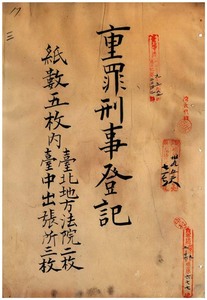 重罪刑事登記
紙數五枚內
臺北地方法院二枚
臺中出張所三枚